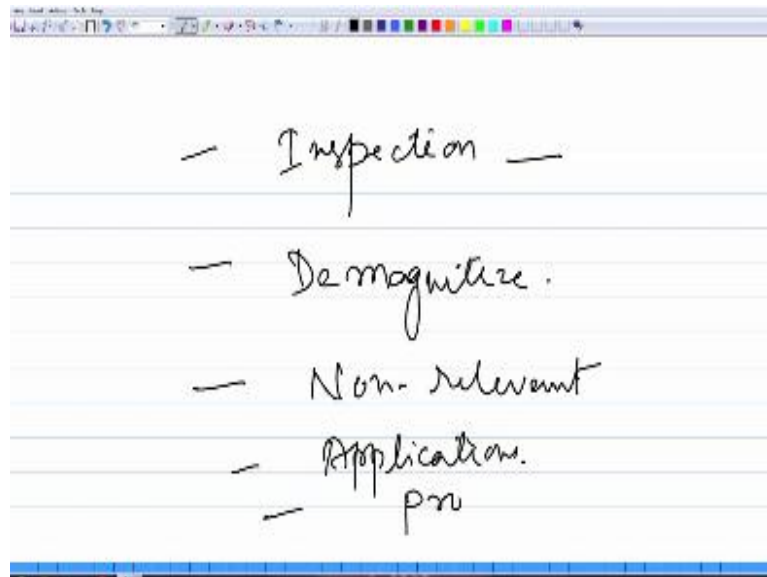 - Inspection -
- Demagnitize.
- Non-relevant
- Applications.
- Pro